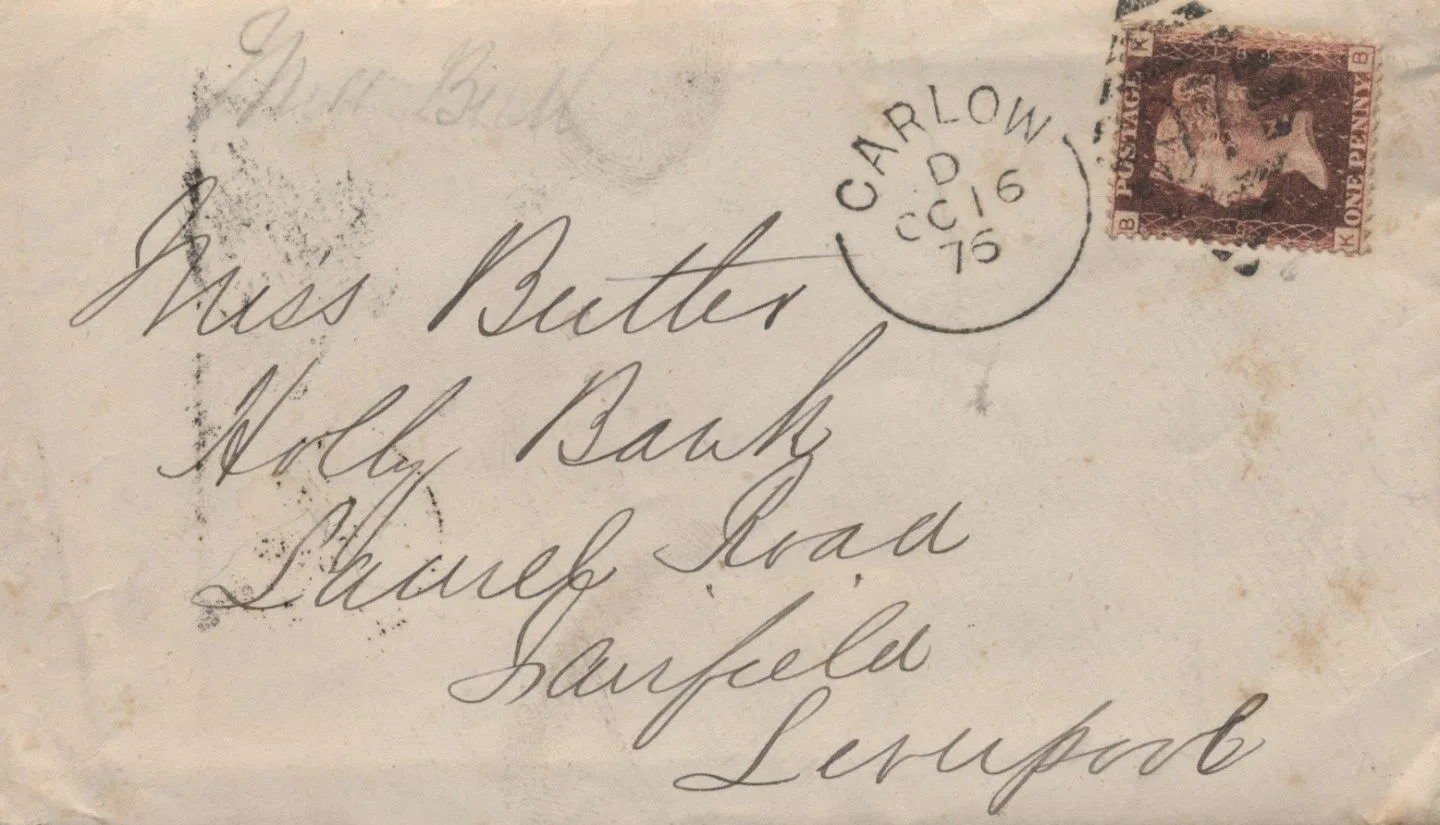 CARLOW
D
OC 16
76
K B
POSTAGE
ONE PENNY
B K
Miss Butler
Holly Bank
Laurel Road
Fairfield
Liverpool